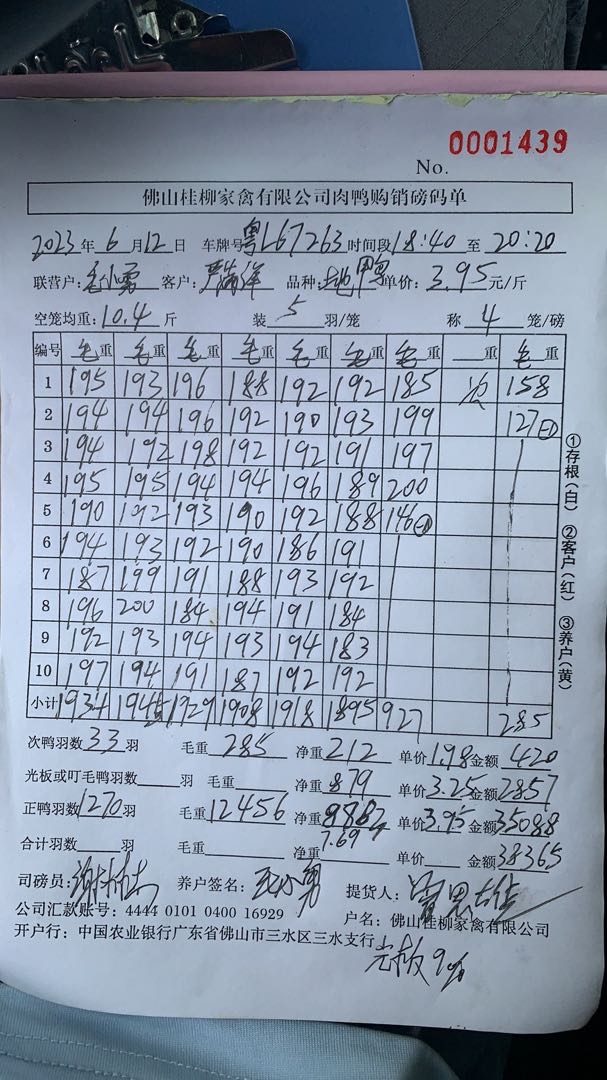 0001439
No.
佛山桂柳家禽有限公司肉鸭购销磅码单
2023年6月12日 车牌号粤L67263时间段18:40至20:20
联营户:毛小勇 客户: 品种: 鸭 单价:3.95元/斤
空笼均重:10.4斤 装5羽/笼 称4笼/磅
编号 毛重 毛重 毛重 毛重 毛重 毛重 毛重 重 毛重
1 195 193 196 188 192 192 185 次 158
2 194 194 196 192 190 193 199 127
3 194 192 198 192 192 191 197
4 195 195 194 194 196 189 200
5 190 192 193 190 192 188 146
6 194 193 192 190 186 191
7 187 199 191 188 193 192
8 196 200 184 194 191 184
9 192 193 194 193 194 183
10 197 194 191 187 192 192
小计 1934 1945 1929 1908 1918 1895 927 285
①存根(白) ②客户(红) ③养户(黄)
次鸭羽数33羽 毛重285 净重212 单价1.98金额420
光板或叮毛鸭羽数 羽 毛重 净重879 单价3.25金额2857
正鸭羽数1270羽 毛重12456 净重 单价3.95金额35088
7.69
合计羽数 羽 毛重 净重 单价 金额38365
司磅员: 养户签名:毛小勇 提货人:
公司汇款账号:4444 0101 0400 16929 户名:佛山桂柳家禽有限公司
开户行:中国农业银行广东省佛山市三水区三水支行
光板9%